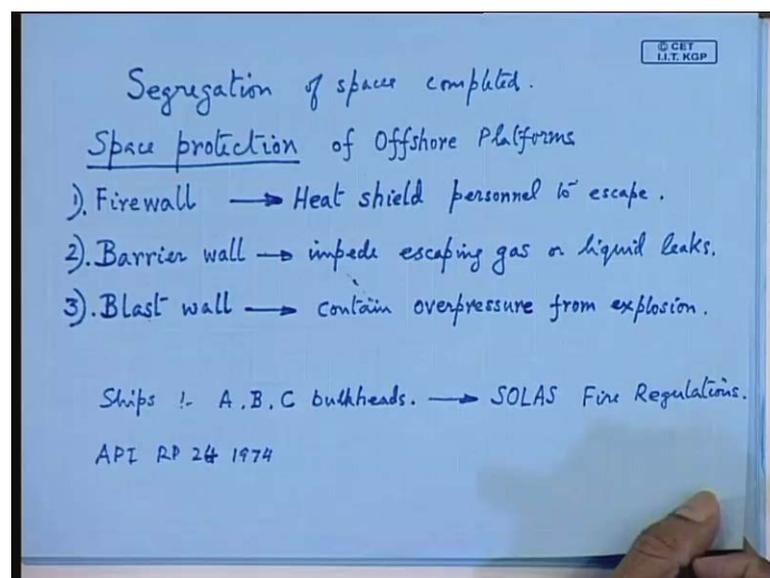 © CET
I.I.T. KGP
Segregation of spaces completed.
Space protection of Offshore Platforms
1). Firewall → Heat shield personnel to escape.
2). Barrier wall → impede escaping gas or liquid leaks.
3). Blast wall → contain overpressure from explosion.
Ships :- A, B, C bulkheads. → SOLAS Fire Regulations.
API RP 1974